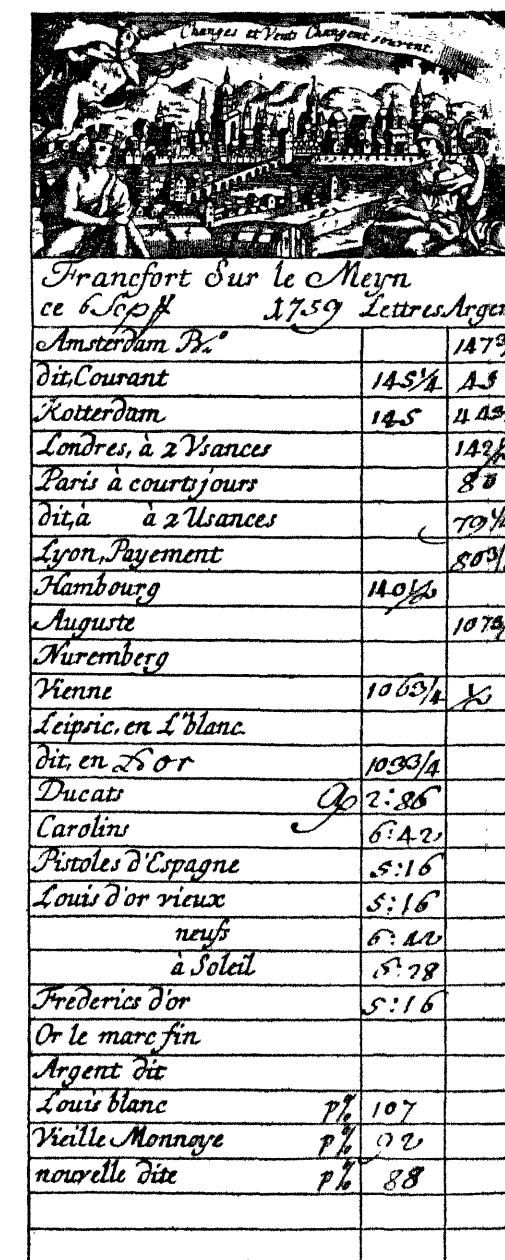 Changes et Vents Changent souvent.
Francfort Sur le Meyn
ce 6 1759 Lettres Argen
Amsterdam Bco 147
dit, Courant 145 1/4 45
Rotterdam 145
Londres, à 2 Vsances 142
Paris à courts jours 80
dit, à à 2 Usances 79
Lyon, Payement 80
Hambourg 140 1/2
Auguste 107
Nuremberg
Vienne 106 3/4 1/2
Leipsic, en L'blanc
dit, en L'or 103 3/4
Ducats 2:86
Carolins 6:42
Pistoles d'Espagne 5:16
Louis d'or vieux 5:16
neufs 6:42
à Soleil 6:28
Frederics d'or 5:16
Or le marc fin
Argent dit
Louis blanc p% 107
Vieille Monnoye p% 92
nouvelle dite p% 88